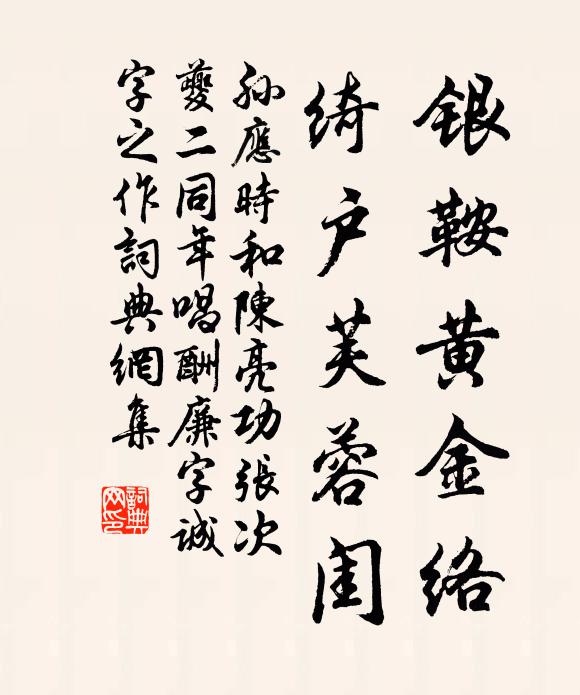 銀鞍黄金絡
綺户芙蓉闺
孙應時和陳亮功張次
夔二同年唱酬廉字誠
字之作詞典網集
詞典
网印